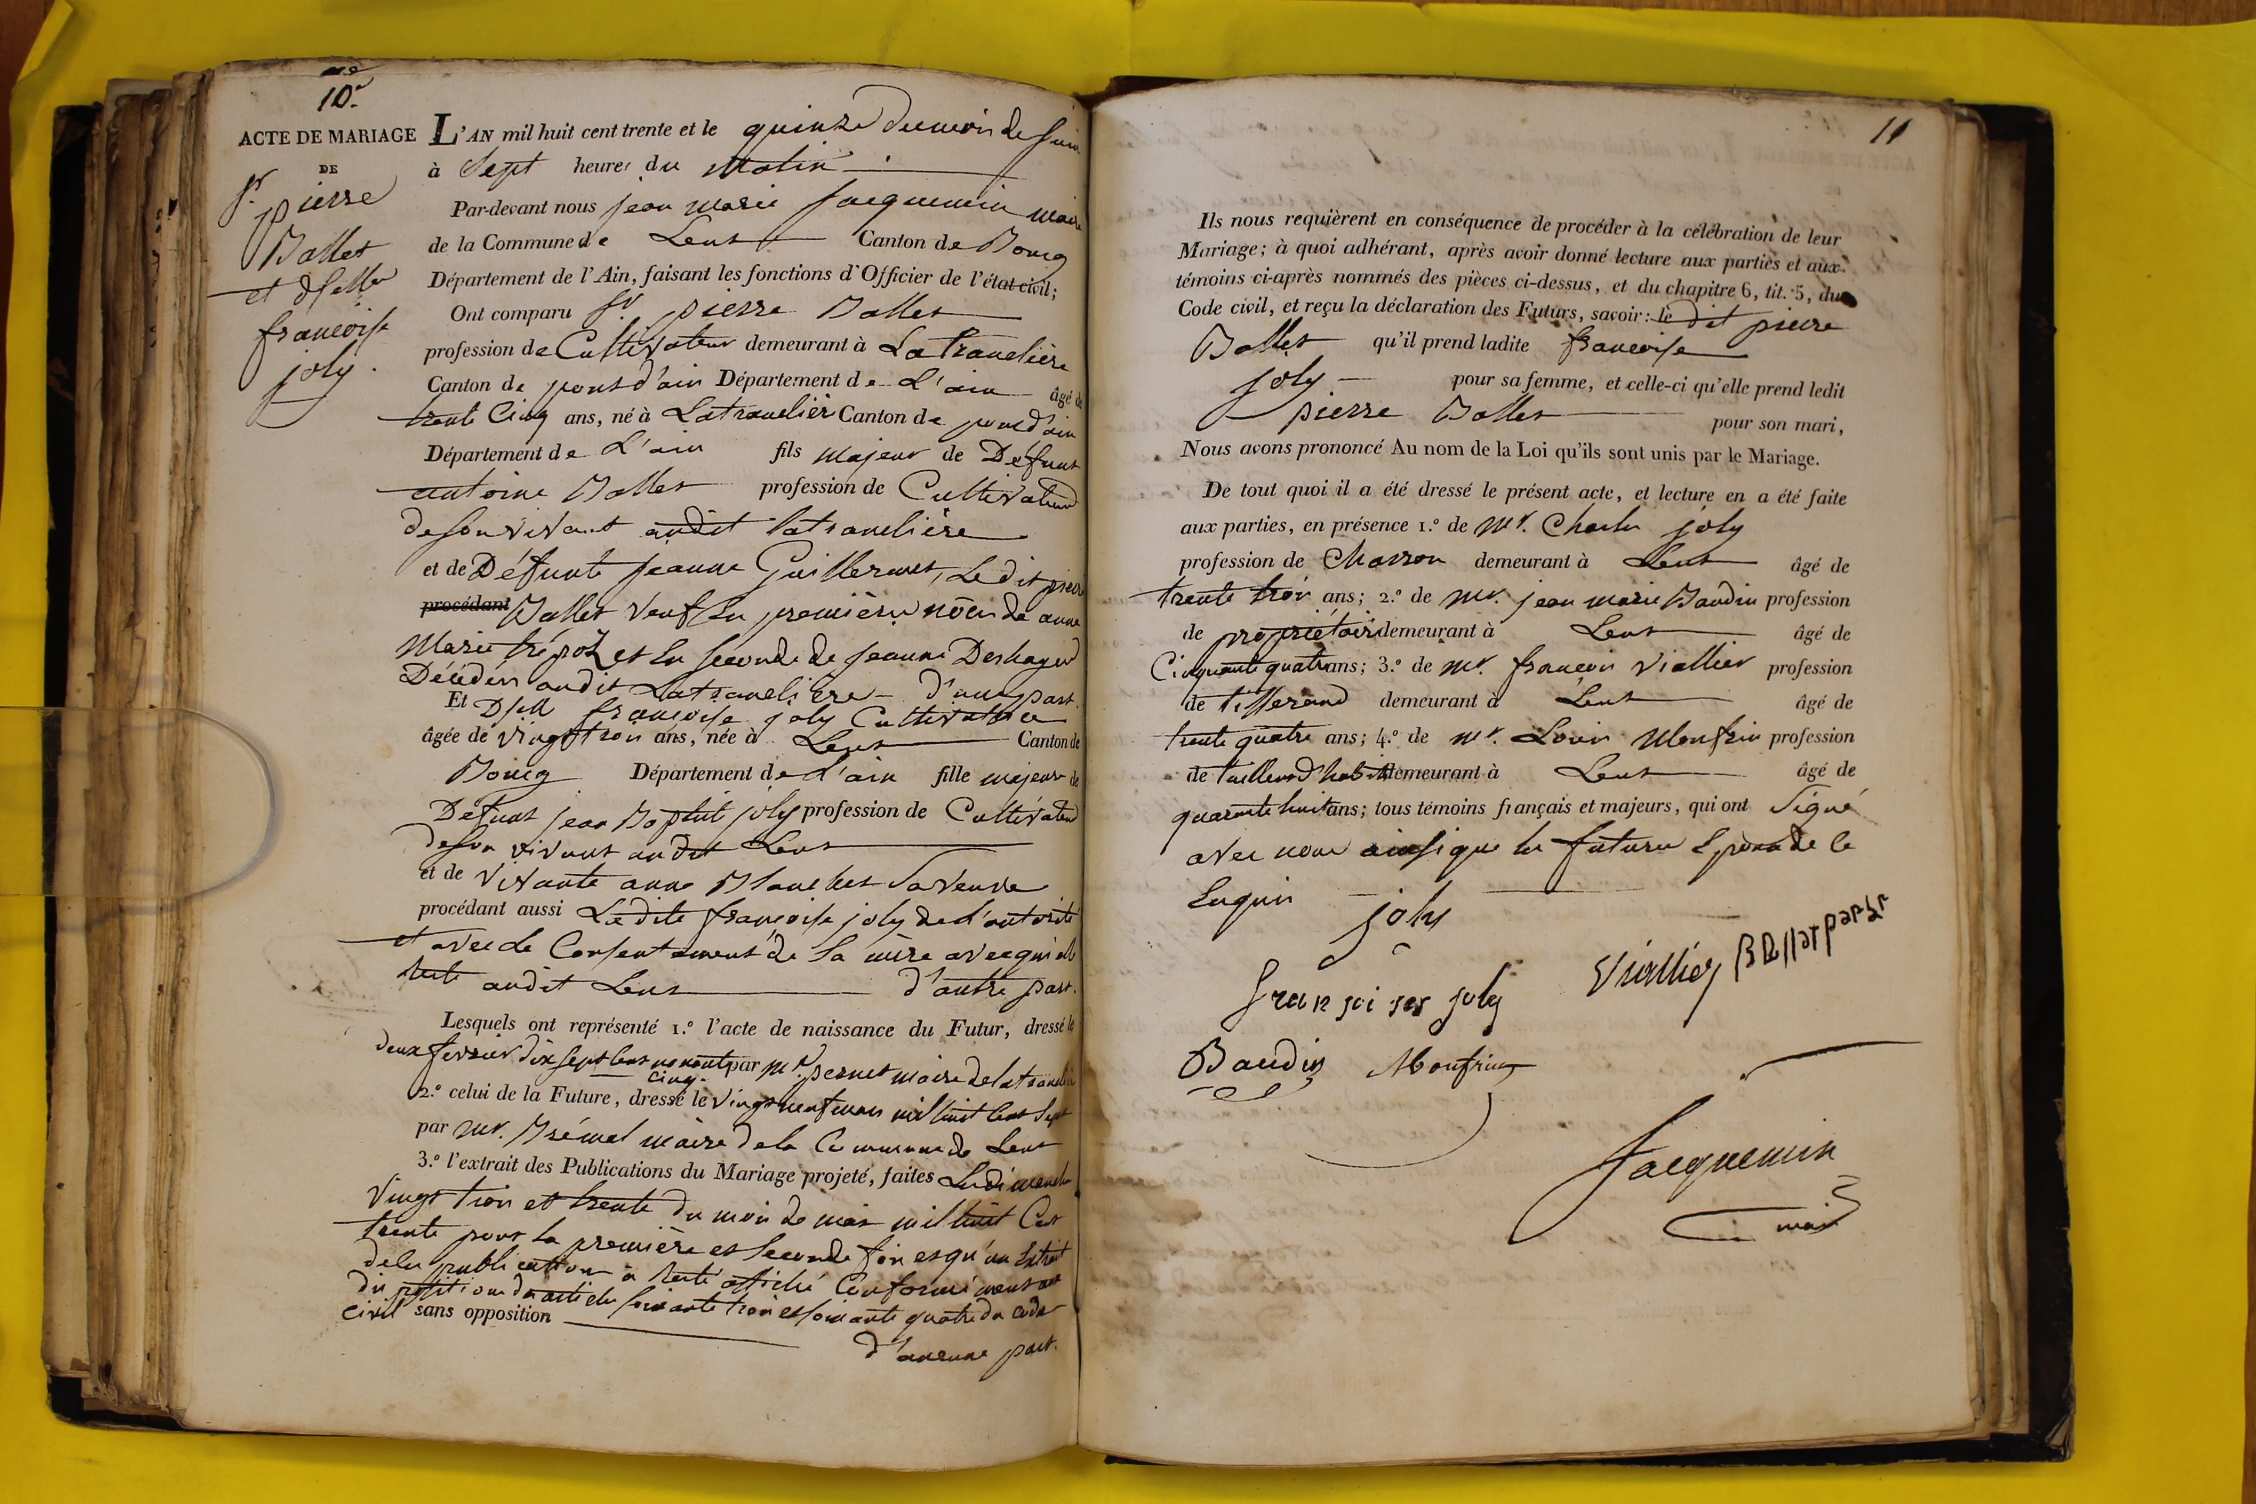 10.e
ACTE DE MARIAGE
DE
Sr. pierre
Ballet
et dlelle
francoise
joly.
L'AN mil huit cent trente et le quinze du mois de Juin
à Sept heures du Matin
Par-devant nous jean marie jacquemin maire
de la Commune de Lent Canton de Bourg
Département de l'Ain, faisant les fonctions d'Officier de l'état civil;
Ont comparu Sr. pierre Ballet
profession de Cultivateur demeurant à La tranclière
Canton de pont d'ain Département de L'ain âgé de
trente Cinq ans, né à Latranclière Canton de pont d'ain
Département de L'ain fils majeur de Defunt
antoine Ballet profession de Cultivateur
de son vivant audit latranclière
et de Défunte jeanne Guillermet, Le dit pierre
procédant Ballet veuf en première nôce de anne
Marie trépoz et en séconde de jeanne Deshayes
Décédés audit Latranclière d'une part.
Et Dlelle françoise joly Cultivatrice
âgée de vingt trois ans, née à Lent Canton de
Bourg Département de L'ain fille majeur de
Defunt jean Baptiste joly profession de Cultivateur
de son vivant audit Lent
et de vivante anne Blanchet sa veuve
procédant aussi Ladite françoise joly de L'autorité
et avec le Consentement de sa mère avec qui elle
reste audit Lent d'autre part.
Lesquels ont représenté 1.º l'acte de naissance du Futur, dressé le
deux fevrier dix sept cent nonante par mr. pernet maire de latranclière
cinq.
2.º celui de la Future, dressé le vingt neuf mars mil huit cent Sept
par mr. Brémal maire de la Commune de Lent
3.º l'extrait des Publications du Mariage projeté, faites Les dimanche
vingt trois et trente du mois de mai mil huit Cent
trente pour la première et seconde fois et qu'un Extrait
de la publication a resté affiché Conformément aux
dispositions d'articles soixante trois et soixante quatre du code
civil sans opposition
d'aucune part.
11
Ils nous requièrent en conséquence de procéder à la célébration de leur
Mariage; à quoi adhérant, après avoir donné lecture aux parties et aux
témoins ci-après nommés des pièces ci-dessus, et du chapitre 6, tit. 5, du
Code civil, et reçu la déclaration des Futurs, savoir: le dit pierre
Ballet qu'il prend ladite francoise
joly pour sa femme, et celle-ci qu'elle prend ledit
pierre Ballet pour son mari,
Nous avons prononcé Au nom de la Loi qu'ils sont unis par le Mariage.
De tout quoi il a été dressé le présent acte, et lecture en a été faite
aux parties, en présence 1.º de Mr. Charles joly
profession de Charron demeurant à Lent âgé de
trente trois ans; 2.º de mr. jean marie Baudin profession
de propriétaire demeurant à Lent âgé de
Cinquante quatre ans; 3.º de mr. françois Viallier profession
de tisserand demeurant à Lent âgé de
trente quatre ans; 4.º de mr. Louis Monfrin profession
de tailleur d'habits demeurant à Lent âgé de
quarante huit ans; tous témoins français et majeurs, qui ont Signé
avec nous ainsi que les futurs Epoux de ce
Enquis
joly
Viallier
joly
Baudin Monfrin
Jacquemin
maire